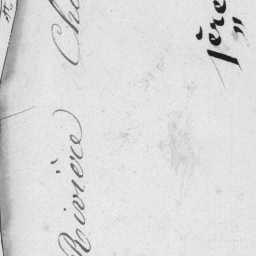 Rivière Ch
1ère
"